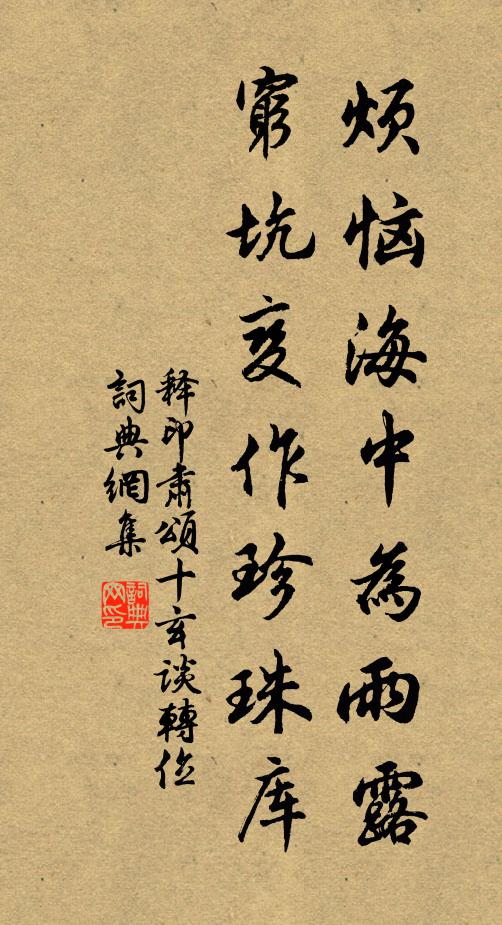 烦恼海中為雨露
窮坑变作珍珠库
释印肃頌十玄談轉位
詞典網集
詞典网印